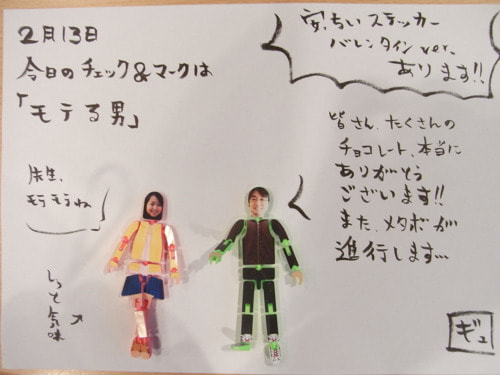 2月13日
今日のチェック&マークは
「モテる男」
安ちぃステッカー
バレンタインver.
あります!!
皆さん、たくさんの
チョコレート、本当に
ありがとう
ございます!!
また、メタボが
進行します…
先生、
モテモテね
しっと気味
ギュ